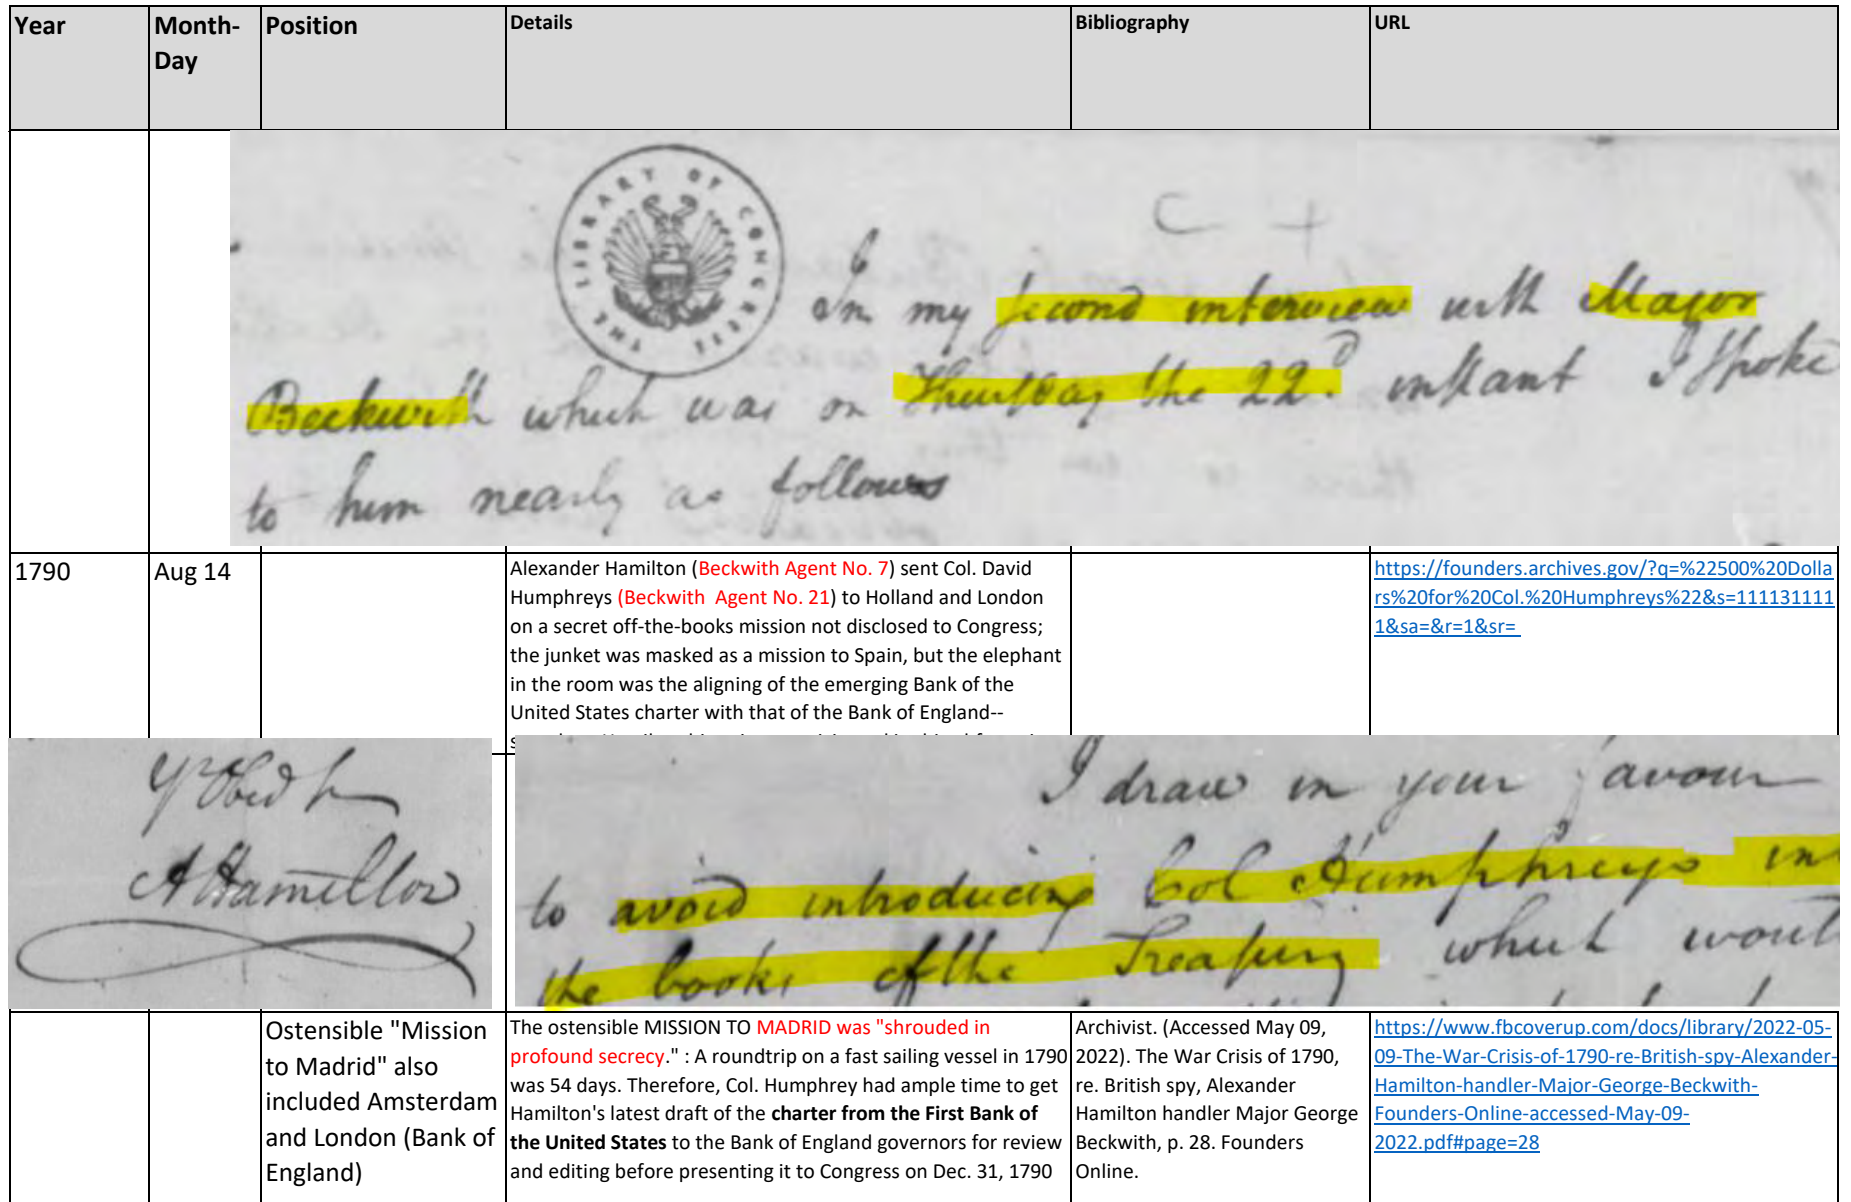 Year
Month-
Day
Position
Details
Bibliography
URL
THE LIBRARY OF CONGRESS
C +
In my second interview with Major
Beckwith which was on Thursday the 22.d instant I spoke
to him nearly as follows
1790
Aug 14
Alexander Hamilton (Beckwith Agent No. 7) sent Col. David
Humphreys (Beckwith  Agent No. 21) to Holland and London
on a secret off-the-books mission not disclosed to Congress;
the junket was masked as a mission to Spain, but the elephant
in the room was the aligning of the emerging Bank of the
United States charter with that of the Bank of England--
https://founders.archives.gov/?q=%22500%20Dolla
rs%20for%20Col.%20Humphreys%22&s=111131111
1&sa=&r=1&sr=
A Hamilton
I draw in your favour
to avoid introducing Col Humphreys in
the books of the Treasury which woul
Ostensible "Mission
to Madrid" also
included Amsterdam
and London (Bank of
England)
The ostensible MISSION TO MADRID was "shrouded in
profound secrecy." : A roundtrip on a fast sailing vessel in 1790
was 54 days. Therefore, Col. Humphrey had ample time to get
Hamilton's latest draft of the charter from the First Bank of
the United States to the Bank of England governors for review
and editing before presenting it to Congress on Dec. 31, 1790
Archivist. (Accessed May 09,
2022). The War Crisis of 1790,
re. British spy, Alexander
Hamilton handler Major George
Beckwith, p. 28. Founders
Online.
https://www.fbcoverup.com/docs/library/2022-05-
09-The-War-Crisis-of-1790-re-British-spy-Alexander-
Hamilton-handler-Major-George-Beckwith-
Founders-Online-accessed-May-09-
2022.pdf#page=28